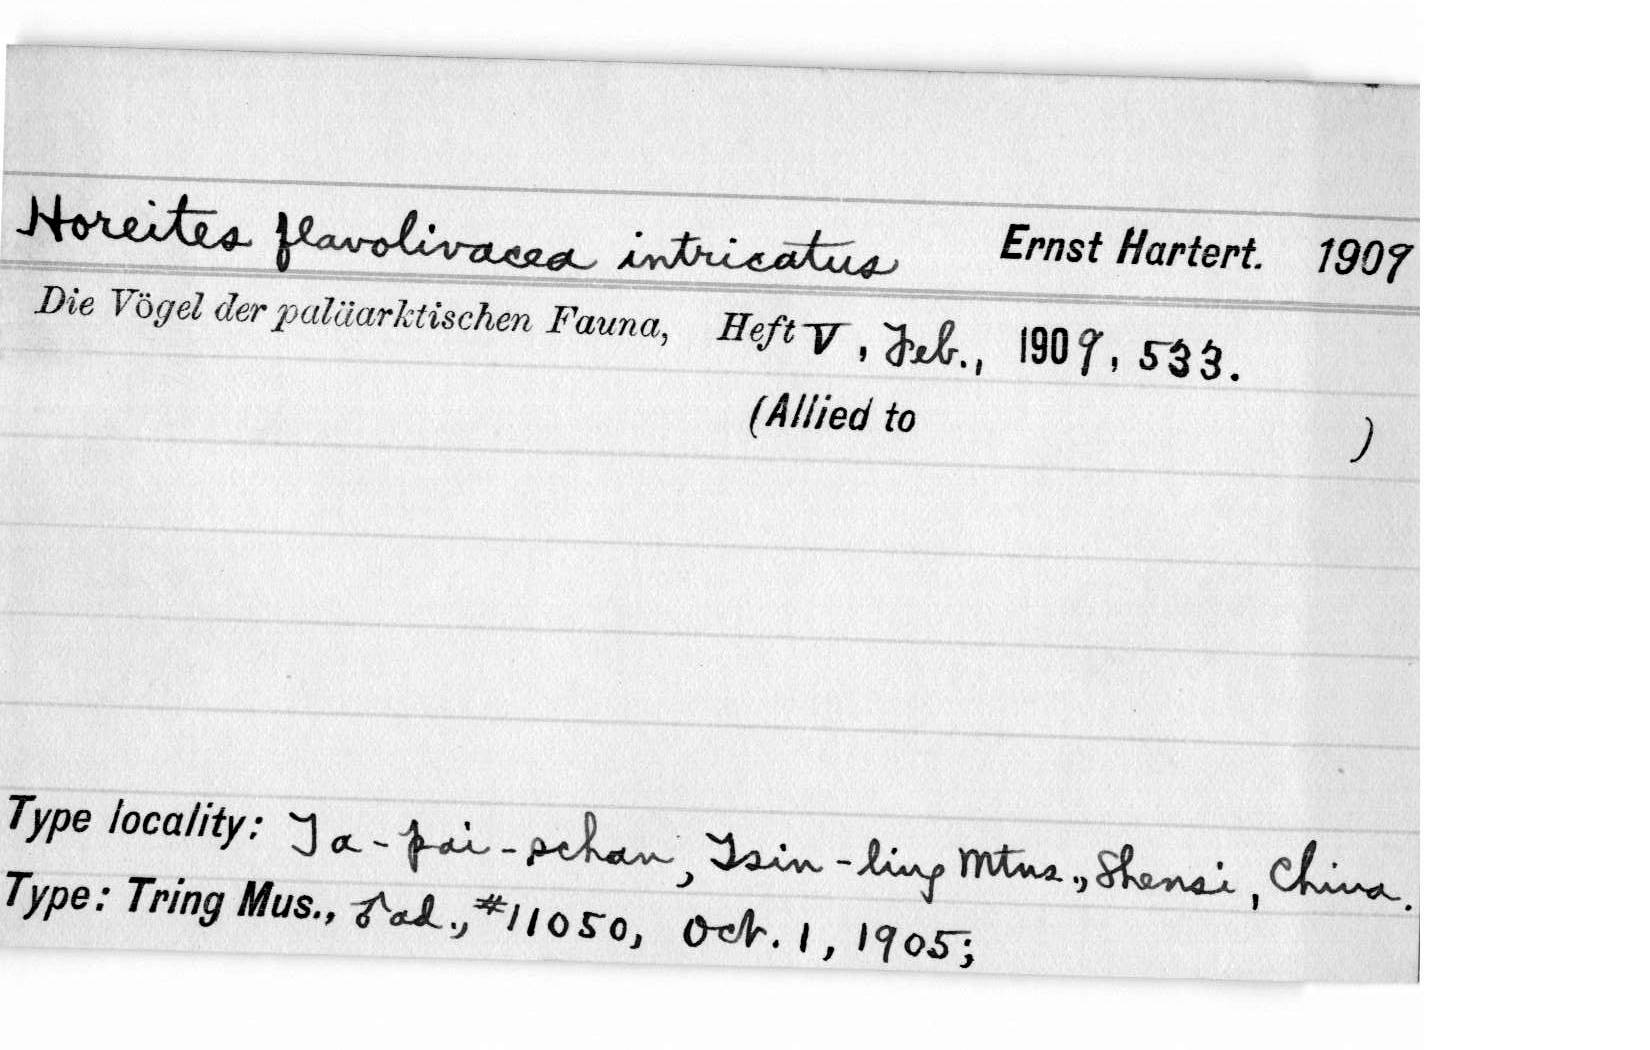 Horeites flavolivacea intricatus Ernst Hartert. 1909
Die Vögel der paläarktischen Fauna, Heft V, Feb., 1909, 533.
(Allied to )
Type locality: Ta-pai-schan, Tsin-ling Mtns., Shensi, China.
Type: Tring Mus., ♂ad., #11050, Oct. 1, 1905;